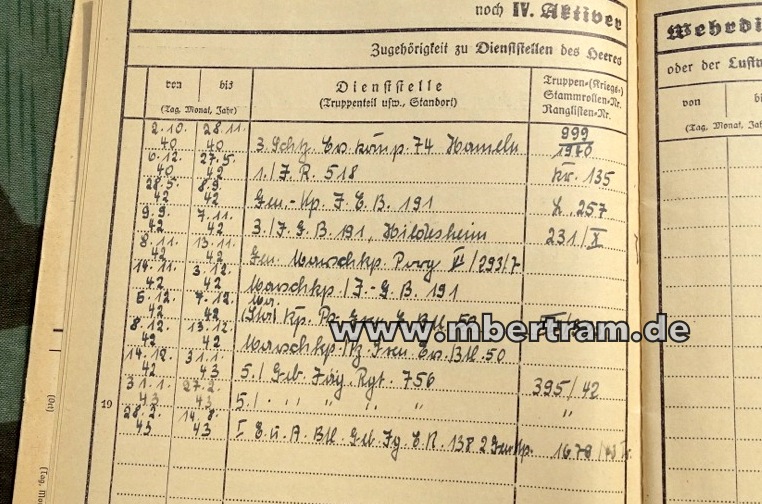 noch IV. Aktiver
Zugehörigkeit zu Dienststellen des Heeres
von bis
(Tag, Monat, Jahr)
Dienststelle
(Truppenteil usw., Standort)
Truppen-(Kriegs-)
Stammrollen-Nr.
Ranglisten-Nr.
2.10. 40 28.11. 40 3. Schtz. Ers. Komp. 74 Hameln 999/1940
6.12. 40 27.5. 42 1./J.R. 518 Kr. 135
28.5. 42 8.9. 42 Gen.-Kp. J.E.B. 191 257
9.9. 42 7.11. 42 3./J.G.B. 191, Hildesheim 231/X
8.11. 42 13.11. 42 Gen. Marschkp. /293/7
14.11. 42 3.12. 42 Marschkp./J.-G.B. 191
5.12. 42 7.12. 42 Kp. Pz. Gren. Btl. 50
8.12. 42 13.12. 42 Marschkp. Pz. Gren. Ers. Btl. 50
14.12. 42 31.1. 43 5./Geb. Jäg. Rgt. 756 395/42
31.1. 43 27.2. 43 5./ " " " " "
28.2. 43 14.8. 43 I. E.u.A. Btl. Geb. Jg. E.R. 138 2 Gen Kp. 1679
19
(Ort)
(Tag, Mo
Wehrdi
oder der Luftw
von bi
(Tag, Monat, Jah
www.mbertram.de